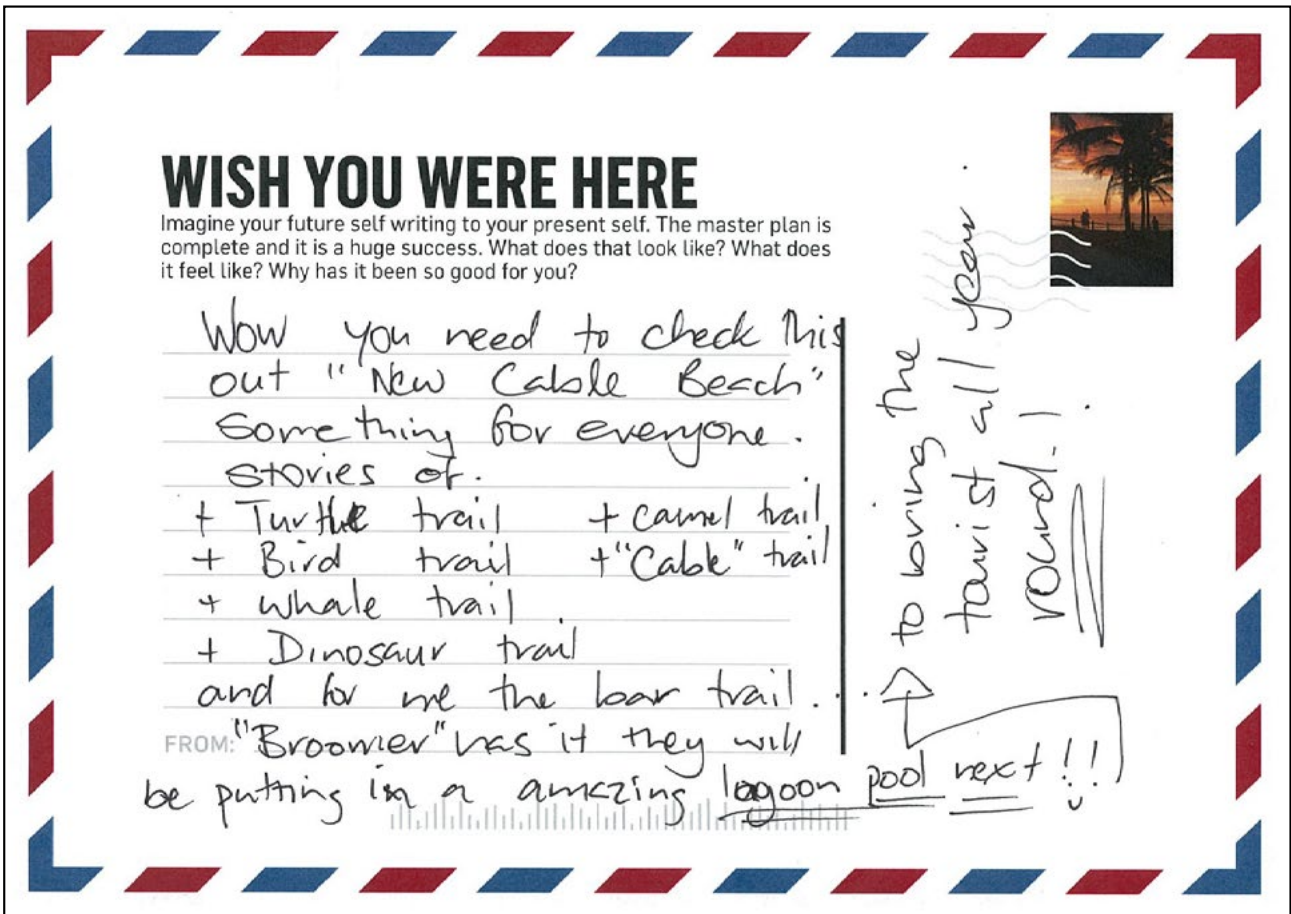 WISH YOU WERE HERE
Imagine your future self writing to your present self. The master plan is
complete and it is a huge success. What does that look like? What does
it feel like? Why has it been so good for you?
Wow you need to check this
out "New Cable Beach"
Something for everyone.
stories of.
+ Turtle trail + camel trail
+ Bird trail + "Cable" trail
+ whale trail
+ Dinosaur trail
and for me the bar trail...
FROM: "Broomer" has it they will
be putting in a amazing lagoon pool next!!
to bring the
tourist all year
round!